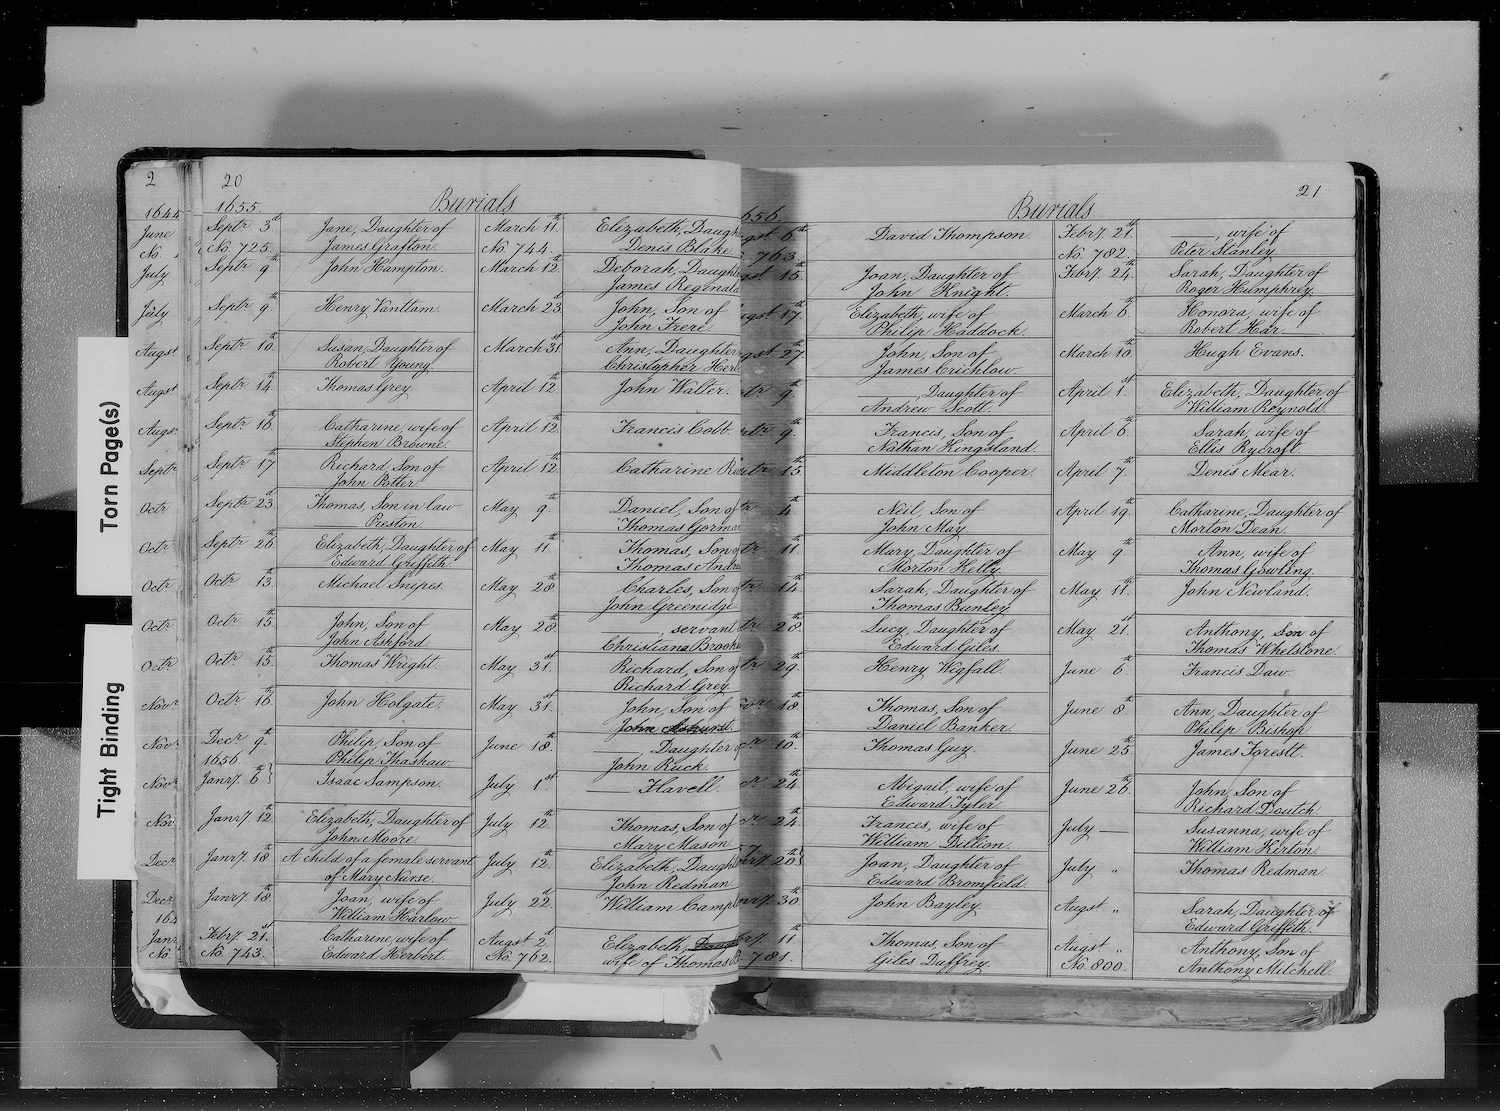 Torn Page(s)
Tight Binding
2
1644
June
No.
July
July
Augst
Augst
Augst
Septr
Octr
Octr
Octr
Octr
Octr
Novr
Novr
Novr
Novr
Decr
Decr
Janr
No
20
Burials
1655.
Septr 3d Jane, Daughter of
No. 725. James Grafton.
Septr 9th John Hampton.
Septr 9th Henry Vantlam.
Septr 10th Susan, Daughter of
Robert Young.
Septr 14th Thomas Grey.
Septr 16th Catharine, wife of
Stephen Browne.
Septr 17th Richard, Son of
John Potter.
Septr 23d Thomas, Son in law
Preston.
Septr 26th Elizabeth, Daughter of
Edward Griffith.
Octr 13th Michael Snipes.
Octr 15th John, Son of
John Ashford.
Octr 15th Thomas Wright.
Octr 16th John Holgate.
Decr 9th Philip, Son of
1656. Philip Thashaw.
Janry 6th Isaac Sampson.
Janry 12th Elizabeth, Daughter of
John Moore.
Janry 18th A child of a female servant
of Mary Nurse.
Janry 18th Joan, wife of
William Harlow.
Febry 21st Catharine, wife of
No. 743. Edward Herbert.
March 11th Elizabeth, Daugh
No. 744. Denis Blake
March 12th Deborah, Daught
James Regenald
March 23d John, Son of
John Frere
March 31st Ann, Daughter
Christopher Her
April 12th John Walter.
April 12th Francis Cobb.
April 12th Catharine R
May 9th Daniel, Son of
Thomas Gorma
May 11th Thomas, Son of
Thomas Andr
May 28th Charles, Son of
John Greenidge
May 28th , servant
Christiana Brook
May 31st Richard, Son of
Richard Grey.
May 31st John, Son of
John Ashurst.
June 18th , Daughter of
John Ruck.
July 1st Havell.
July 12th Thomas, Son of
Mary Mason
July 12th Elizabeth, Daught
John Redman
July 22d William Camp
Augst 2d Elizabeth, Daugh
No. 762. wife of Thomas B
21
Burials
656.
ugst 6th David Thompson.
763.
gst 15th Joan, Daughter of
John Knight.
ugst 17th Elizabeth, wife of
Philip Haddock.
gst 27th John, Son of
James Crichlow.
tr 9th , Daughter of
Andrew Scott.
tr 9th Francis, Son of
Nathan Kingsland.
tr 15th Middleton Cooper.
tr 4th Neil, Son of
John May.
tr 11th Mary, Daughter of
Morton Kelly.
tr 14th Sarah, Daughter of
Thomas Banley.
tr 28th Lucy, Daughter of
Edward Giles.
tr 29th Henry Wigfall.
ovr 18th Thomas, Son of
Daniel Banker.
r 10th Thomas Guy.
r 24th Abigail, wife of
Edward Tyler.
r 24th Frances, wife of
William Dillion.
nry 20th Joan, Daughter of
Edward Bromfield.
nry 30th John Bayley.
ry 11th Thomas, Son of
781. Giles Duffrey.
Febry 21st , wife of
No. 782. Peter Stanley.
Febry 24th Sarah, Daughter of
Roger Humphrey.
March 6th Honora, wife of
Robert Hear.
March 10th Hugh Evans.
April 1st Elizabeth, Daughter of
William Reynold.
April 6th Sarah, wife of
Ellis Rycroft.
April 7th Denis Mear.
April 19th Catharine, Daughter of
Morton Dean.
May 9th Ann, wife of
Thomas Gowling.
May 11th John Newland.
May 21st Anthony, Son of
Thomas Whelstone.
June 6th Francis Daw.
June 8th Ann, Daughter of
Philip Bishop.
June 25th James Forestt.
June 26th John, Son of
Richard Doutch.
July Susanna, wife of
William Kerton.
July " Thomas Redman.
Augst " Sarah, Daughter of
Edward Griffeth.
Augst " Anthony, Son of
No. 800. Anthony Mitchell.